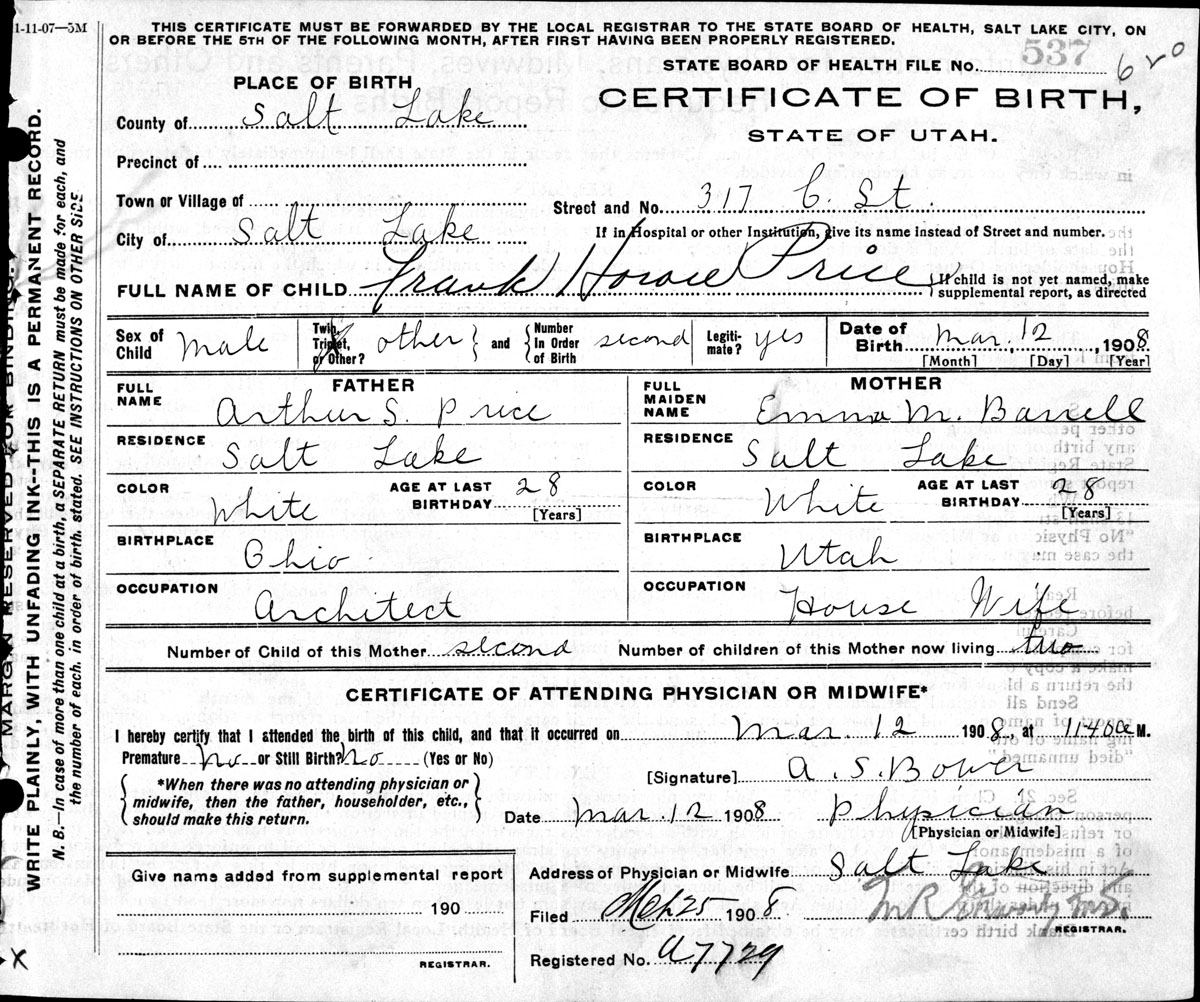 1-11-07—5M
THIS CERTIFICATE MUST BE FORWARDED BY THE LOCAL REGISTRAR TO THE STATE BOARD OF HEALTH, SALT LAKE CITY, ON
OR BEFORE THE 5TH OF THE FOLLOWING MONTH, AFTER FIRST HAVING BEEN PROPERLY REGISTERED.
STATE BOARD OF HEALTH FILE No. 537 620
PLACE OF BIRTH
CERTIFICATE OF BIRTH,
County of Salt Lake
STATE OF UTAH.
Precinct of
Town or Village of
Street and No. 317 C. St.
City of Salt Lake
If in Hospital or other Institution, give its name instead of Street and number.
FULL NAME OF CHILD Frank Howe Price
If child is not yet named, make
supplemental report, as directed
Sex of Child male
Twin, Triplet, or Other? other and Number In Order of Birth second
Legitimate? yes
Date of Birth Mar. 12, 1908
[Month] [Day] [Year]
FATHER
MOTHER
FULL NAME Arthur S. Price
FULL MAIDEN NAME Emma M. Barrell
RESIDENCE Salt Lake
RESIDENCE Salt Lake
COLOR White AGE AT LAST BIRTHDAY 28 [Years]
COLOR White AGE AT LAST BIRTHDAY 28 [Years]
BIRTHPLACE Ohio
BIRTHPLACE Utah
OCCUPATION Architect
OCCUPATION House Wife
Number of Child of this Mother second Number of children of this Mother now living two
CERTIFICATE OF ATTENDING PHYSICIAN OR MIDWIFE*
I hereby certify that I attended the birth of this child, and that it occurred on Mar. 12 1908, at 1140a M.
Premature No or Still Birth? No (Yes or No)
*When there was no attending physician or
midwife, then the father, householder, etc.,
should make this return.
[Signature] A. S. Bower
Date Mar. 12 1908 Physician
[Physician or Midwife]
Give name added from supplemental report
190
REGISTRAR.
Address of Physician or Midwife Salt Lake
Filed Mch 25 1908
REGISTRAR.
Registered No. A7729
MARGIN RESERVED FOR BINDING.
WRITE PLAINLY, WITH UNFADING INK--THIS IS A PERMANENT RECORD.
N. B.—In case of more than one child at a birth, a SEPARATE RETURN must be made for each, and
the number of each, in order of birth, stated. SEE INSTRUCTIONS ON OTHER SIDE.
X